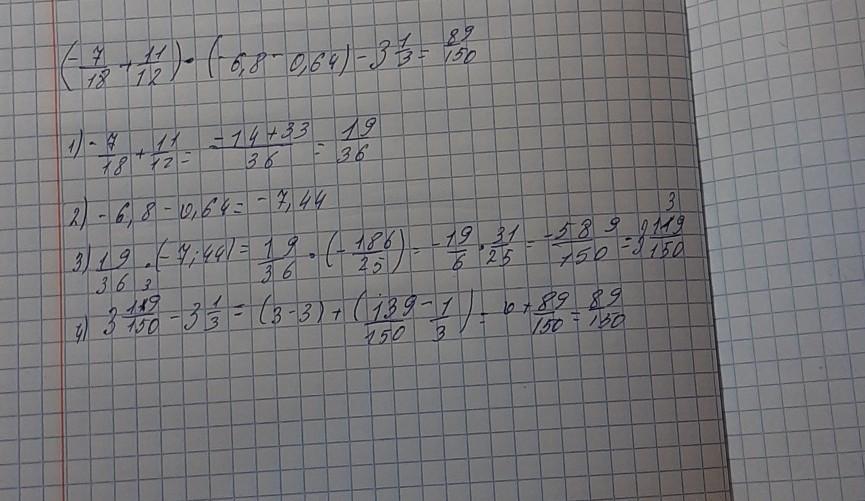 (-7/18 + 11/12) · (-6,8 - 0,64) - 3 1/3 = 89/150
1) -7/18 + 11/12 = -14+33/36 = 19/36
2) -6,8 - 0,64 = -7,44
3) 19/36 · (-7,44) = 19/36 · (-186/25) = -19/6 · 31/25 = -589/150 = 3 /150
4) 3 /150 - 3 1/3 = (3-3) + (139/150 - 1/3) = 0 + 89/150 = 89/150